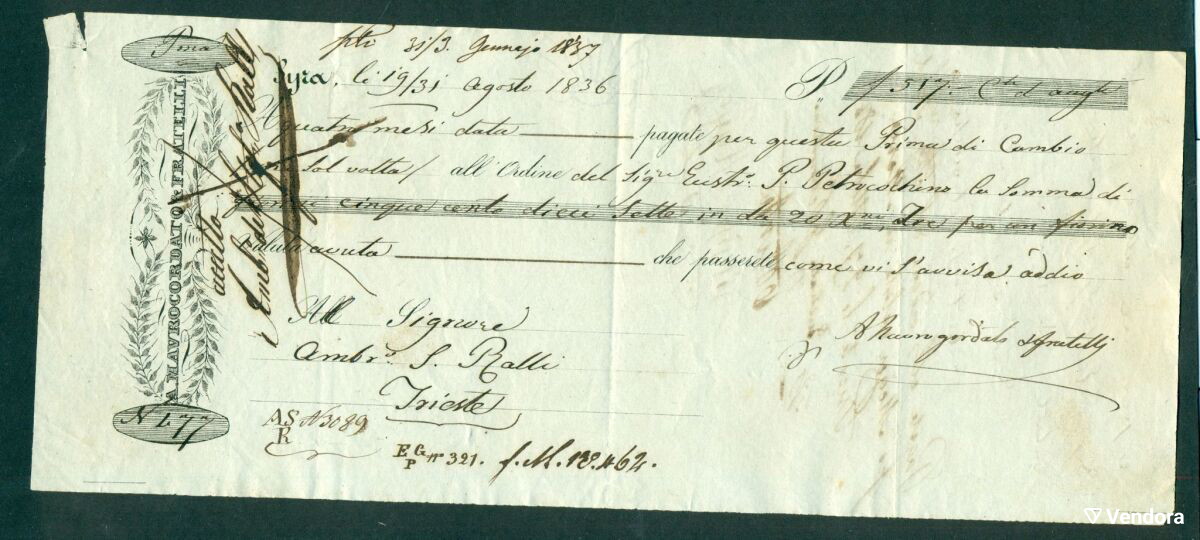 Pma
A. MAVROCORDATO & FRATELLI
N L 77
31/3. Gennajo 1837
Syra, li 19/31 Agosto 1836
P. f 517.-
A quatro mesi data pagate per questa Prima di Cambio
sol volta / all'Ordine del Sigre Eustr. P. Petrocochino la Somma di
fiorini cinque cento dieci Sette in da 20 Xni, Tre per un fiorino
Valuta avuta che passerete come vi s'avvisa addio
A Mavrogordato & fratelli
All Signore
Ambr. S. Ralli
Trieste
accetto
Ambr. Ralli
AS R N 3089
EG P no 321. f. M. 18.462.
Vendora